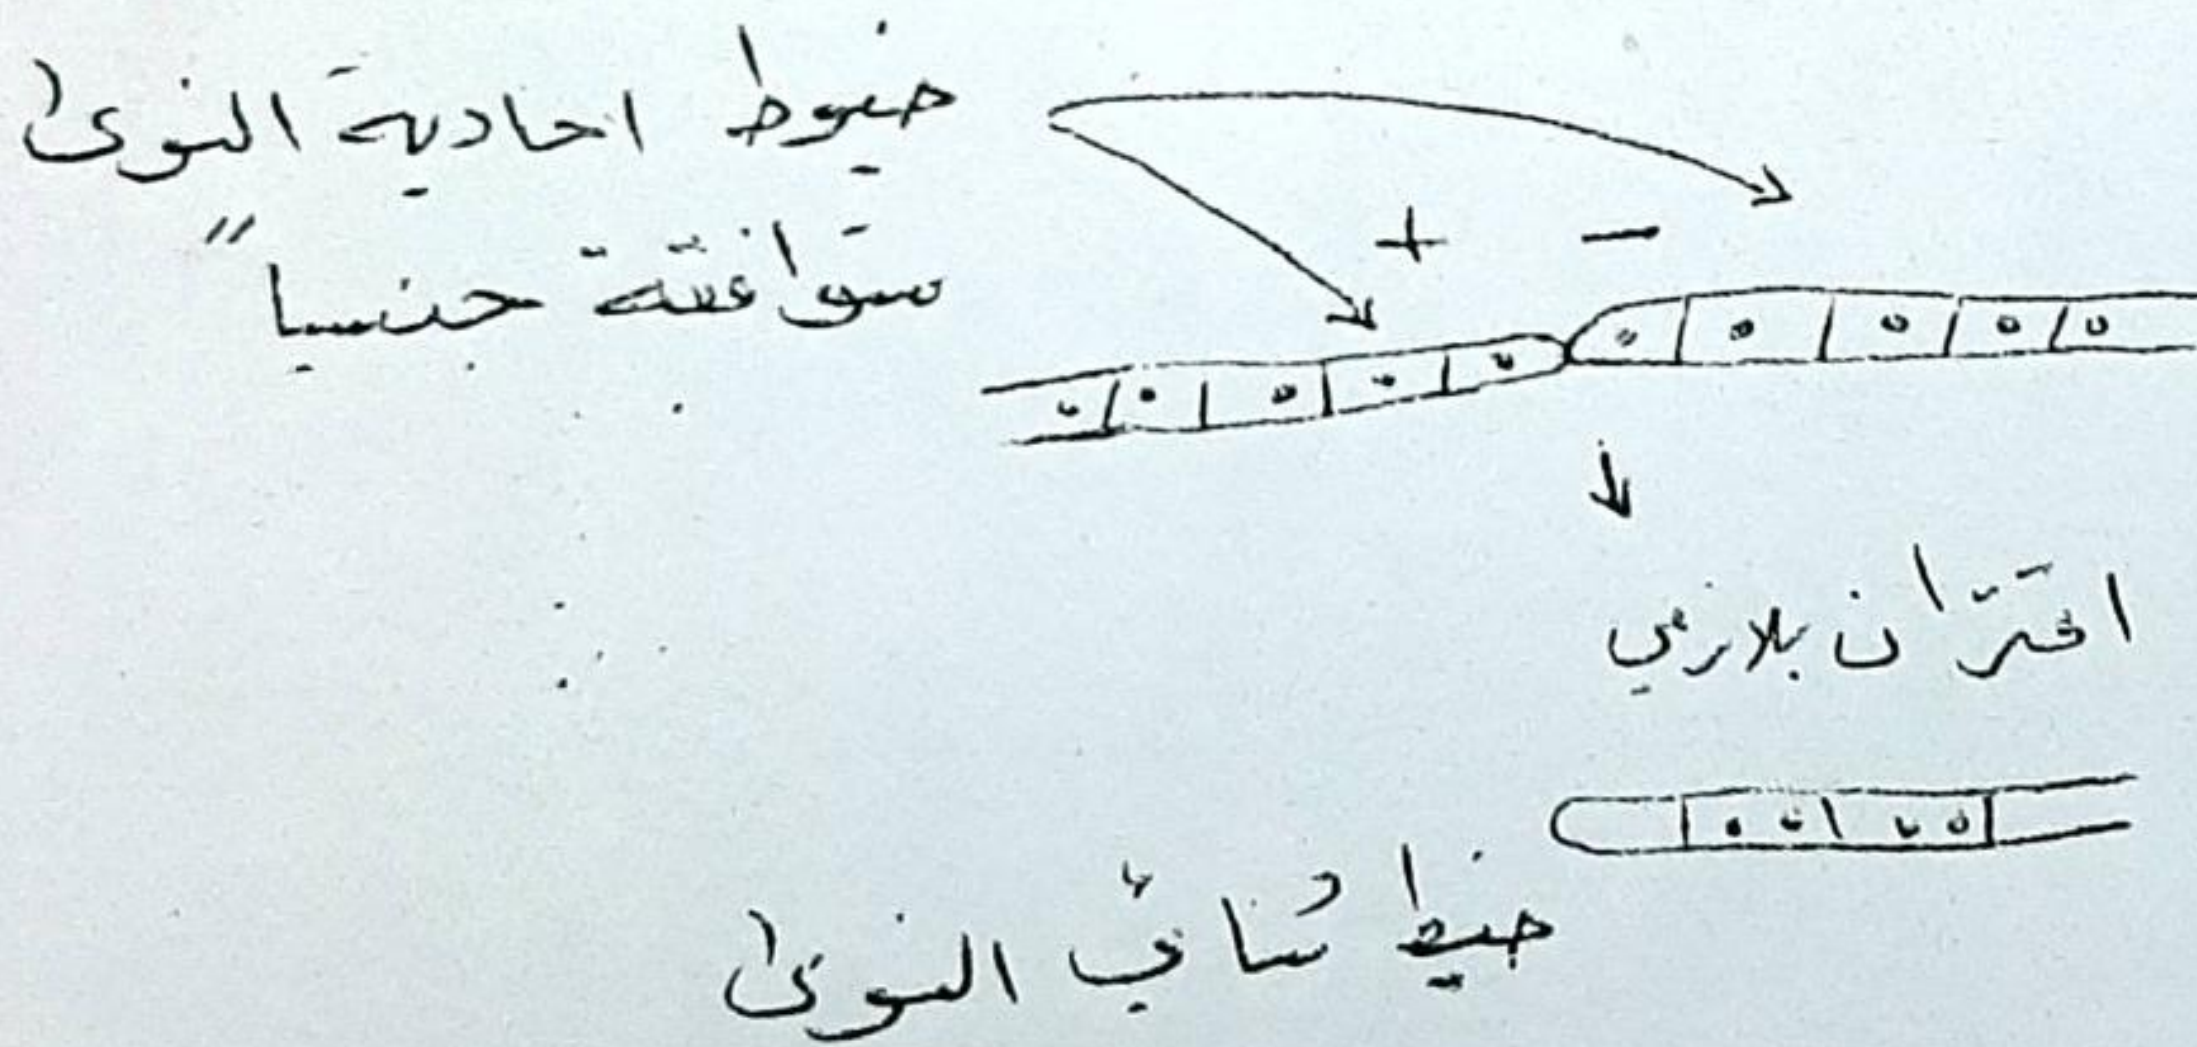 خيوط احادية النوى
متوافقة جنسياً
+ −
اقتران بلازمي
خيط ثنائي النوى